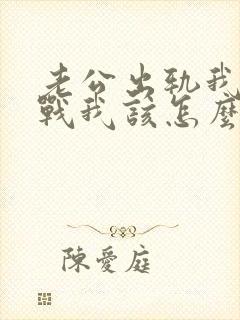 老公出轨我
戰我該怎麼
陳愛庭